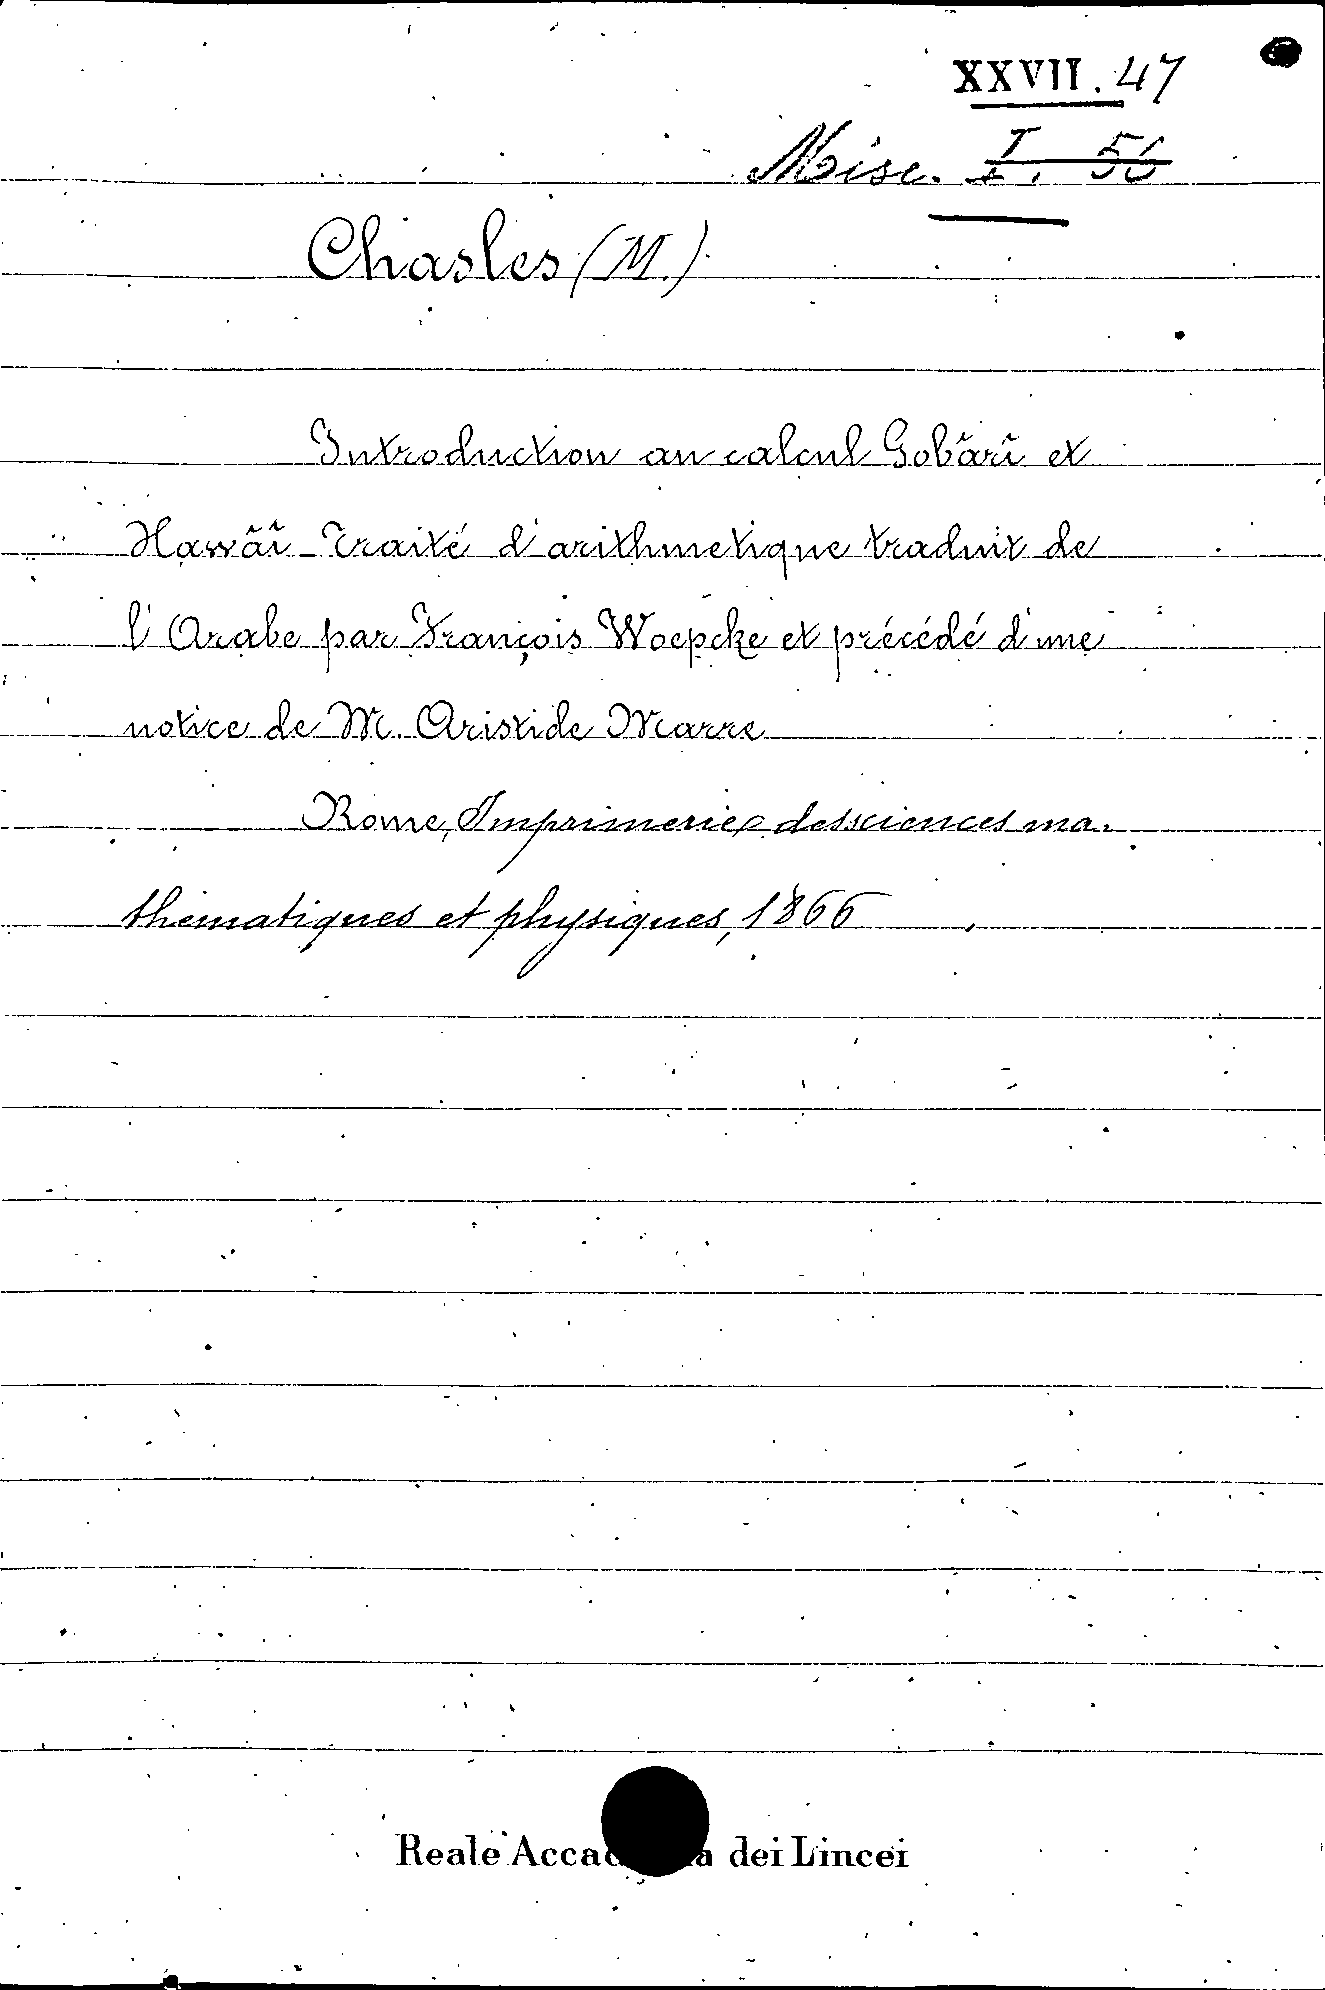 XXVII. 47
Misc. I. 56
Chasles (M.)
Introduction au calcul Gobârî et
Hawâî Traité d'arithmetique traduit de
l'Arabe par François Woepcke et précédé d'une
notice de M. Aristide Marre
Rome, Imprimerie des sciences ma-
thematiques et physiques, 1866
Reale Accad a dei Lincei